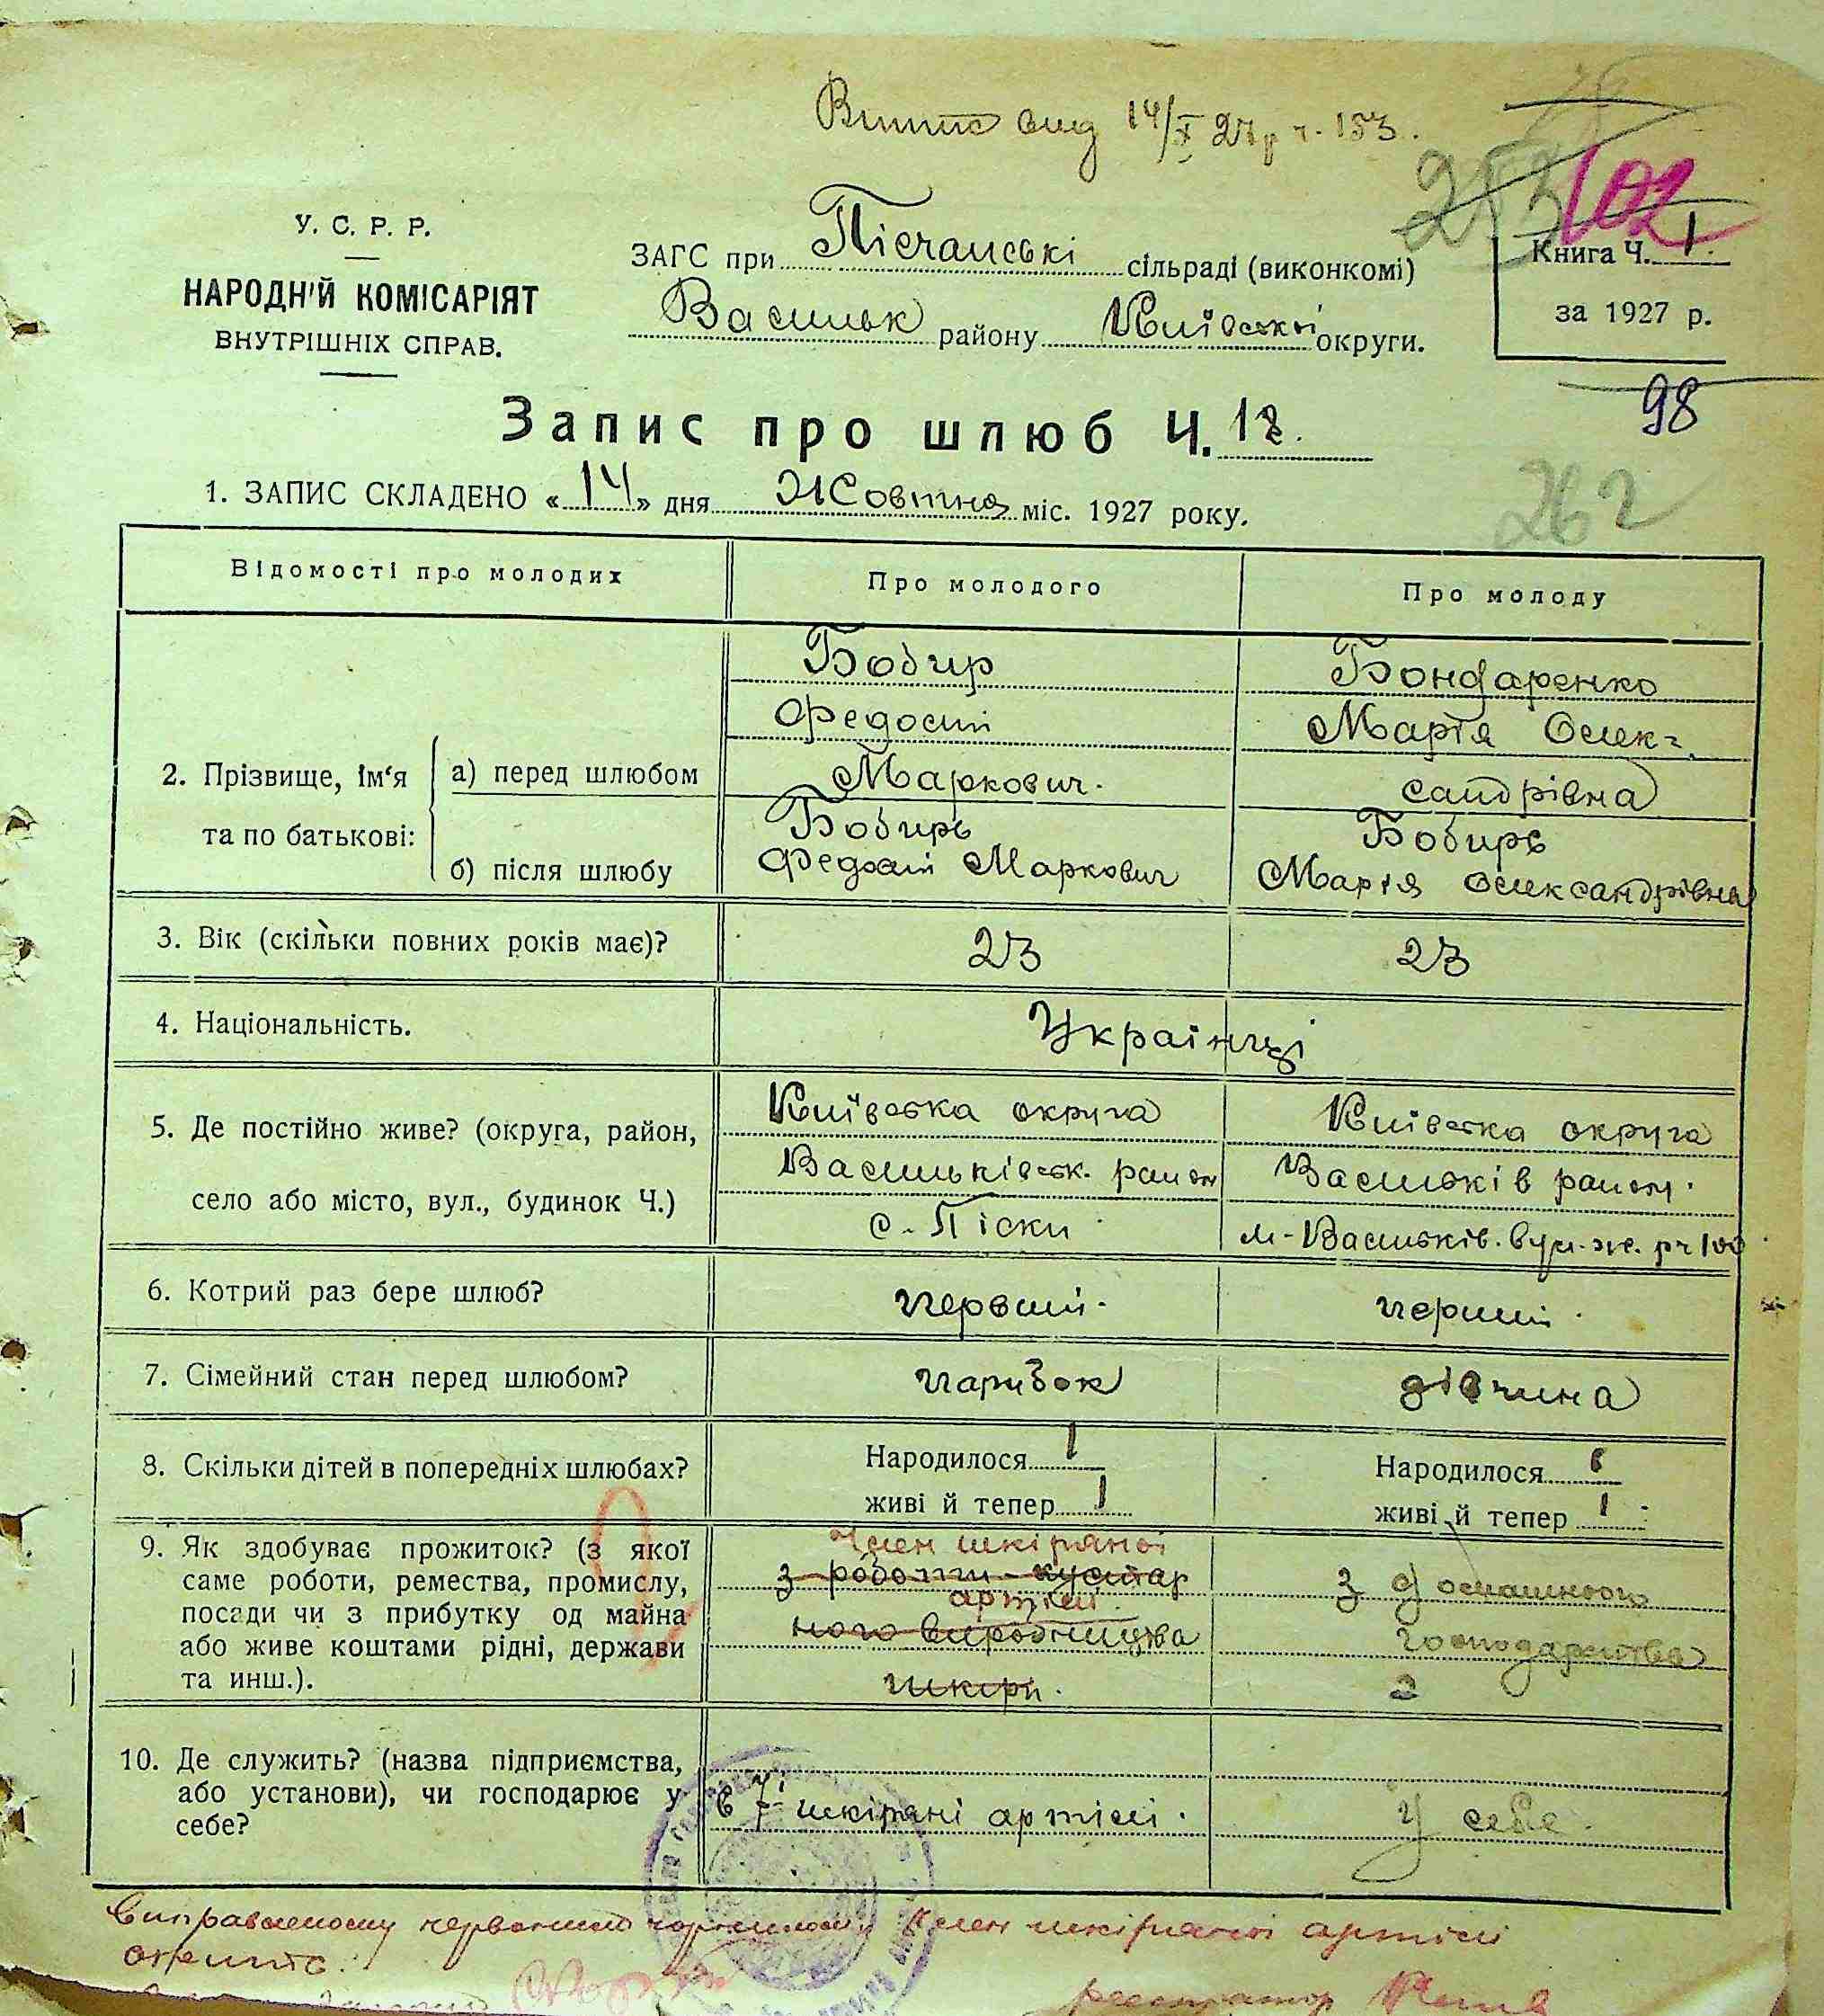 Випис вид 14/X 27р ч. 153.
253 102
У. С. Р. Р.
НАРОДНІЙ КОМІСАРІЯТ
ВНУТРІШНІХ СПРАВ.
ЗАГС при Пісчанські сільраді (виконкомі)
Васильк району Київської округи.
Книга Ч. 1
за 1927 р.
98
Запис про шлюб Ч. 18.
262
1. ЗАПИС СКЛАДЕНО «14» дня Жовтня міс. 1927 року.
Відомості про молодих
Про молодого
Про молоду
2. Прізвище, ім'я та по батькові:
а) перед шлюбом
Бобир
Федосій
Маркович.
Бондаренко
Марія Олек-
сандрівна
б) після шлюбу
Бобирь
Федосій Маркович
Бобирь
Марія Олександрівна
3. Вік (скільки повних років має)?
23
23
4. Національність.
Українці
5. Де постійно живе? (округа, район,
село або місто, вул., будинок Ч.)
Київська округа
Васильківськ. район
с. Піски
Київська округа
Васильків район.
м. Васильків. вул.
6. Котрий раз бере шлюб?
первий.
перший.
7. Сімейний стан перед шлюбом?
парубок
дівчина
8. Скільки дітей в попередніх шлюбах?
Народилося
живі й тепер
Народилося
живі й тепер
9. Як здобуває прожиток? (з якої
саме роботи, ремества, промислу,
посади чи з прибутку од майна
або живе коштами рідні, держави
та инш.).
Член шкіряної
з роботи кустар
артілі
ного виробництва
шкіри.
з домашнього
господарства
10. Де служить? (назва підприємства,
або установи), чи господарює у
себе?
в 7й шкіряні артілі.
у себе.
Виправленому червоними чорнилами Член шкіряної артілі